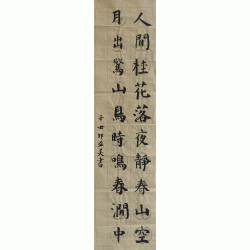 人間桂花落夜靜春山空
月出驚山鳥時鳴春澗中